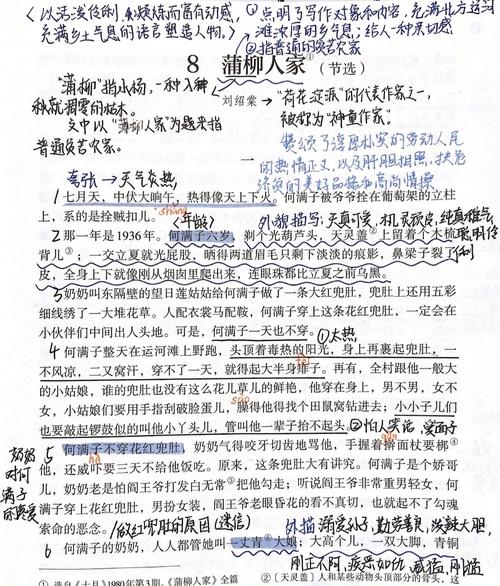 〈以活泼伶俐,
充满乡土气息的语言塑造人物。〉
①点明了写作对象和内容,充满北方运河
滩浓厚的乡土气息;给人一种亲切感
②指普通的贫苦农家
8 蒲柳人家①(节选)
"蒲柳"指水杨,一种入
秋就凋零的枯木。
文中以"蒲柳人家"为题来指
普通贫苦农家。
刘绍棠→"荷花淀派"的代表作家之一,
被称为"神童作家"。
赞颂了淳厚朴实的劳动人民
的热情正义,以及肝胆相照,扶危
济贫的美好品格和高尚情操
一
夸张→天气炎热
1 七月天,中伏大晌午,热得像天上下火。何满子被爷爷拴在葡萄架的立柱
上,系的是拴贼扣儿。
shǎng
(年龄)
外貌描写:天真可爱,机灵顽皮,纯真稚气
聪明伶俐
2 那一年是1936年。何满子六岁,剃个光葫芦头,天灵盖②上留着个木梳
背儿③;一交立夏就光屁股,晒得两道眉毛只剩下淡淡的痕影,鼻梁子裂了
皮,全身上下就像刚从烟囱里爬出来,连眼珠都比立夏之前乌黑。
3 奶奶叫东隔壁的望日莲姑姑给何满子做了一条大红兜肚,兜肚上还用五彩
细线绣了一大堆花草。人配衣裳马配鞍,何满子穿上这条花红兜肚,一定会在
小伙伴们中间出人头地。可是,何满子一天也不穿。
①太热
4 何满子整天在运河滩上野跑,头顶着毒热的阳光,身上再裹起兜肚,一
不风凉,二又窝汗,穿不了一天,就得起大半身痱子。再有,全村跟他一般大
的小姑娘,谁的兜肚也没有这么花儿草儿的鲜艳,他穿在身上,男不男,女不
女,小姑娘们要用手指刮破脸蛋儿,臊得他得找个田鼠窝钻进去;小小子儿们
也要敲起锣鼓似的叫他小丫头儿,管叫他一辈子抬不起头。
②怕人笑话,爱面子
gǎn
5 何满子不穿花红兜肚,奶奶气得咬牙切齿地骂他,手握着擀面杖要梆④
他,还威吓要三天不给他饭吃。原来,这条兜肚大有讲究。何满子是个娇哥
儿,奶奶老是怕阎王爷打发白无常⑤把他勾走;听说阎王爷非常重男轻女,何
满子穿上花红兜肚,男扮女装,阎王爷老眼昏花的看不真切,也就起不了勾魂
索命的恶念。
奶奶
对何
满子
的疼爱
(做红兜肚的原因(迷信)
6 何满子的奶奶,人人都管她叫一丈青⑥大娘;大高个儿,一双大脚,青铜
外貌描
刚正不阿,疾恶如仇
① 选自《十月》1980年第3期。《蒲柳人家》全篇
②〔天灵盖〕人和某些动物头顶部的骨头,这